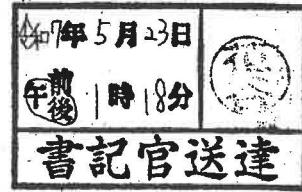 令和7年5月23日
午前後1時18分
書記官送達